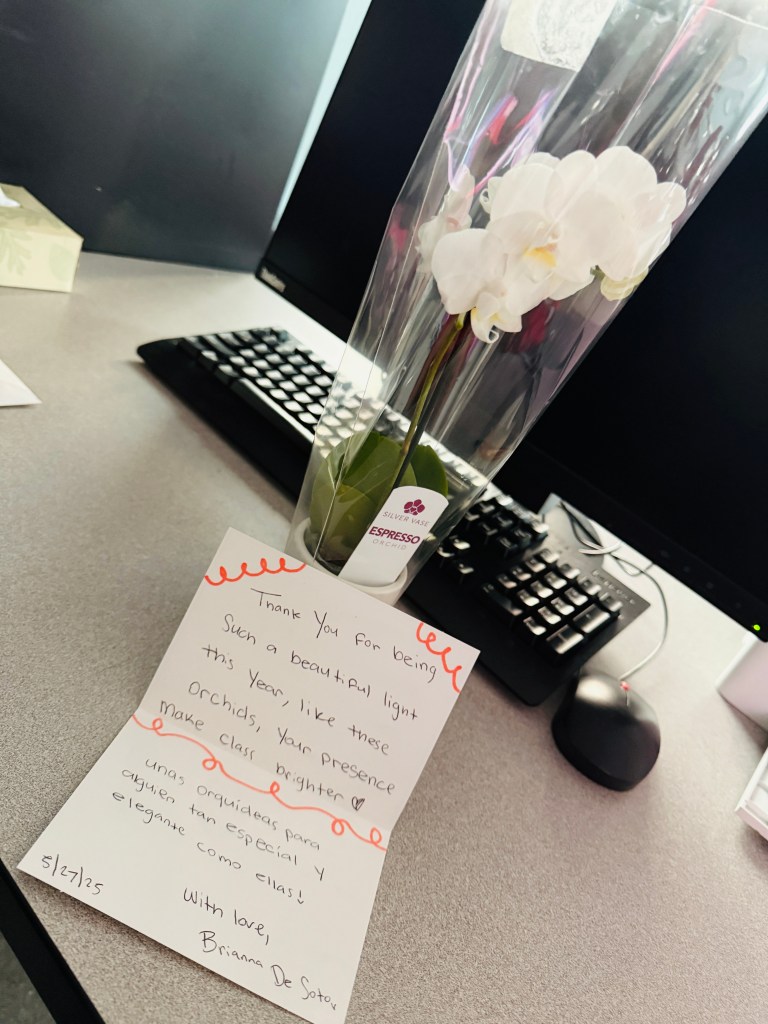 SILVER VASE
ESPRESSO
ORCHID
Thank You for being
Such a beautiful light
this Year, like these
orchids, Your presence
make class brighter ♡
unas orquideas para
alguien tan especial y
elegante como ellas!
5/27/25
With love,
Brianna De Soto